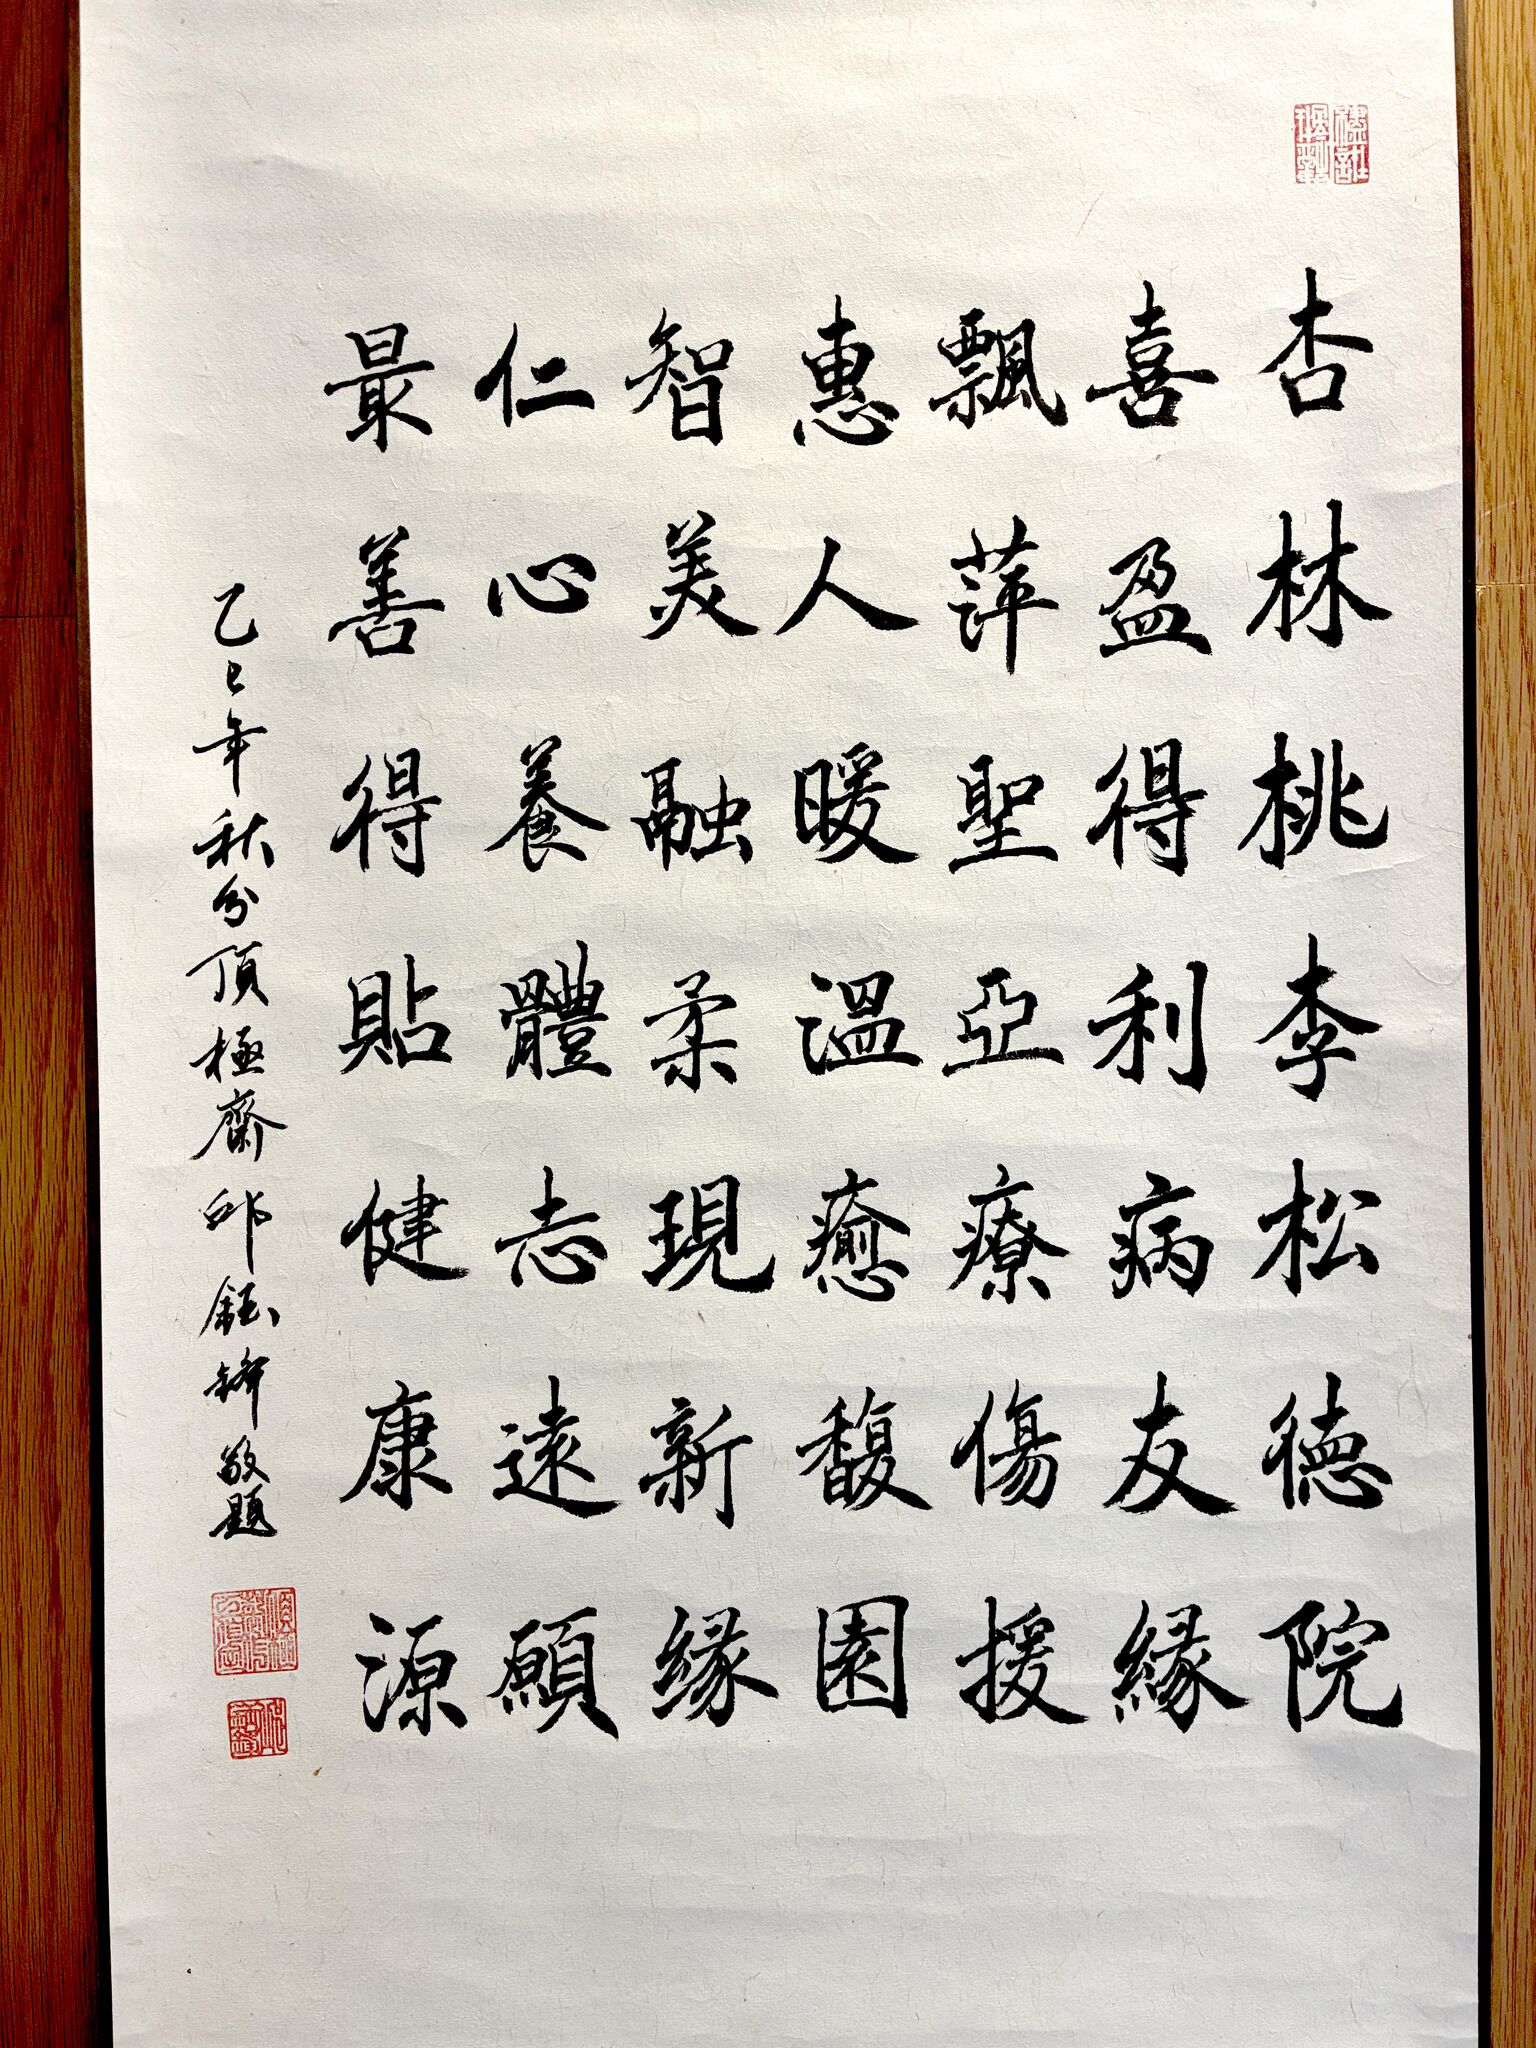 杏林桃李松德院
喜盈得利病友緣
飄萍聖亞療傷援
惠人暖溫癒馥園
智美融柔現新緣
仁心養體志遠願
最善得貼健康源
乙巳年秋分頂極齋邱鈺鋒敬題